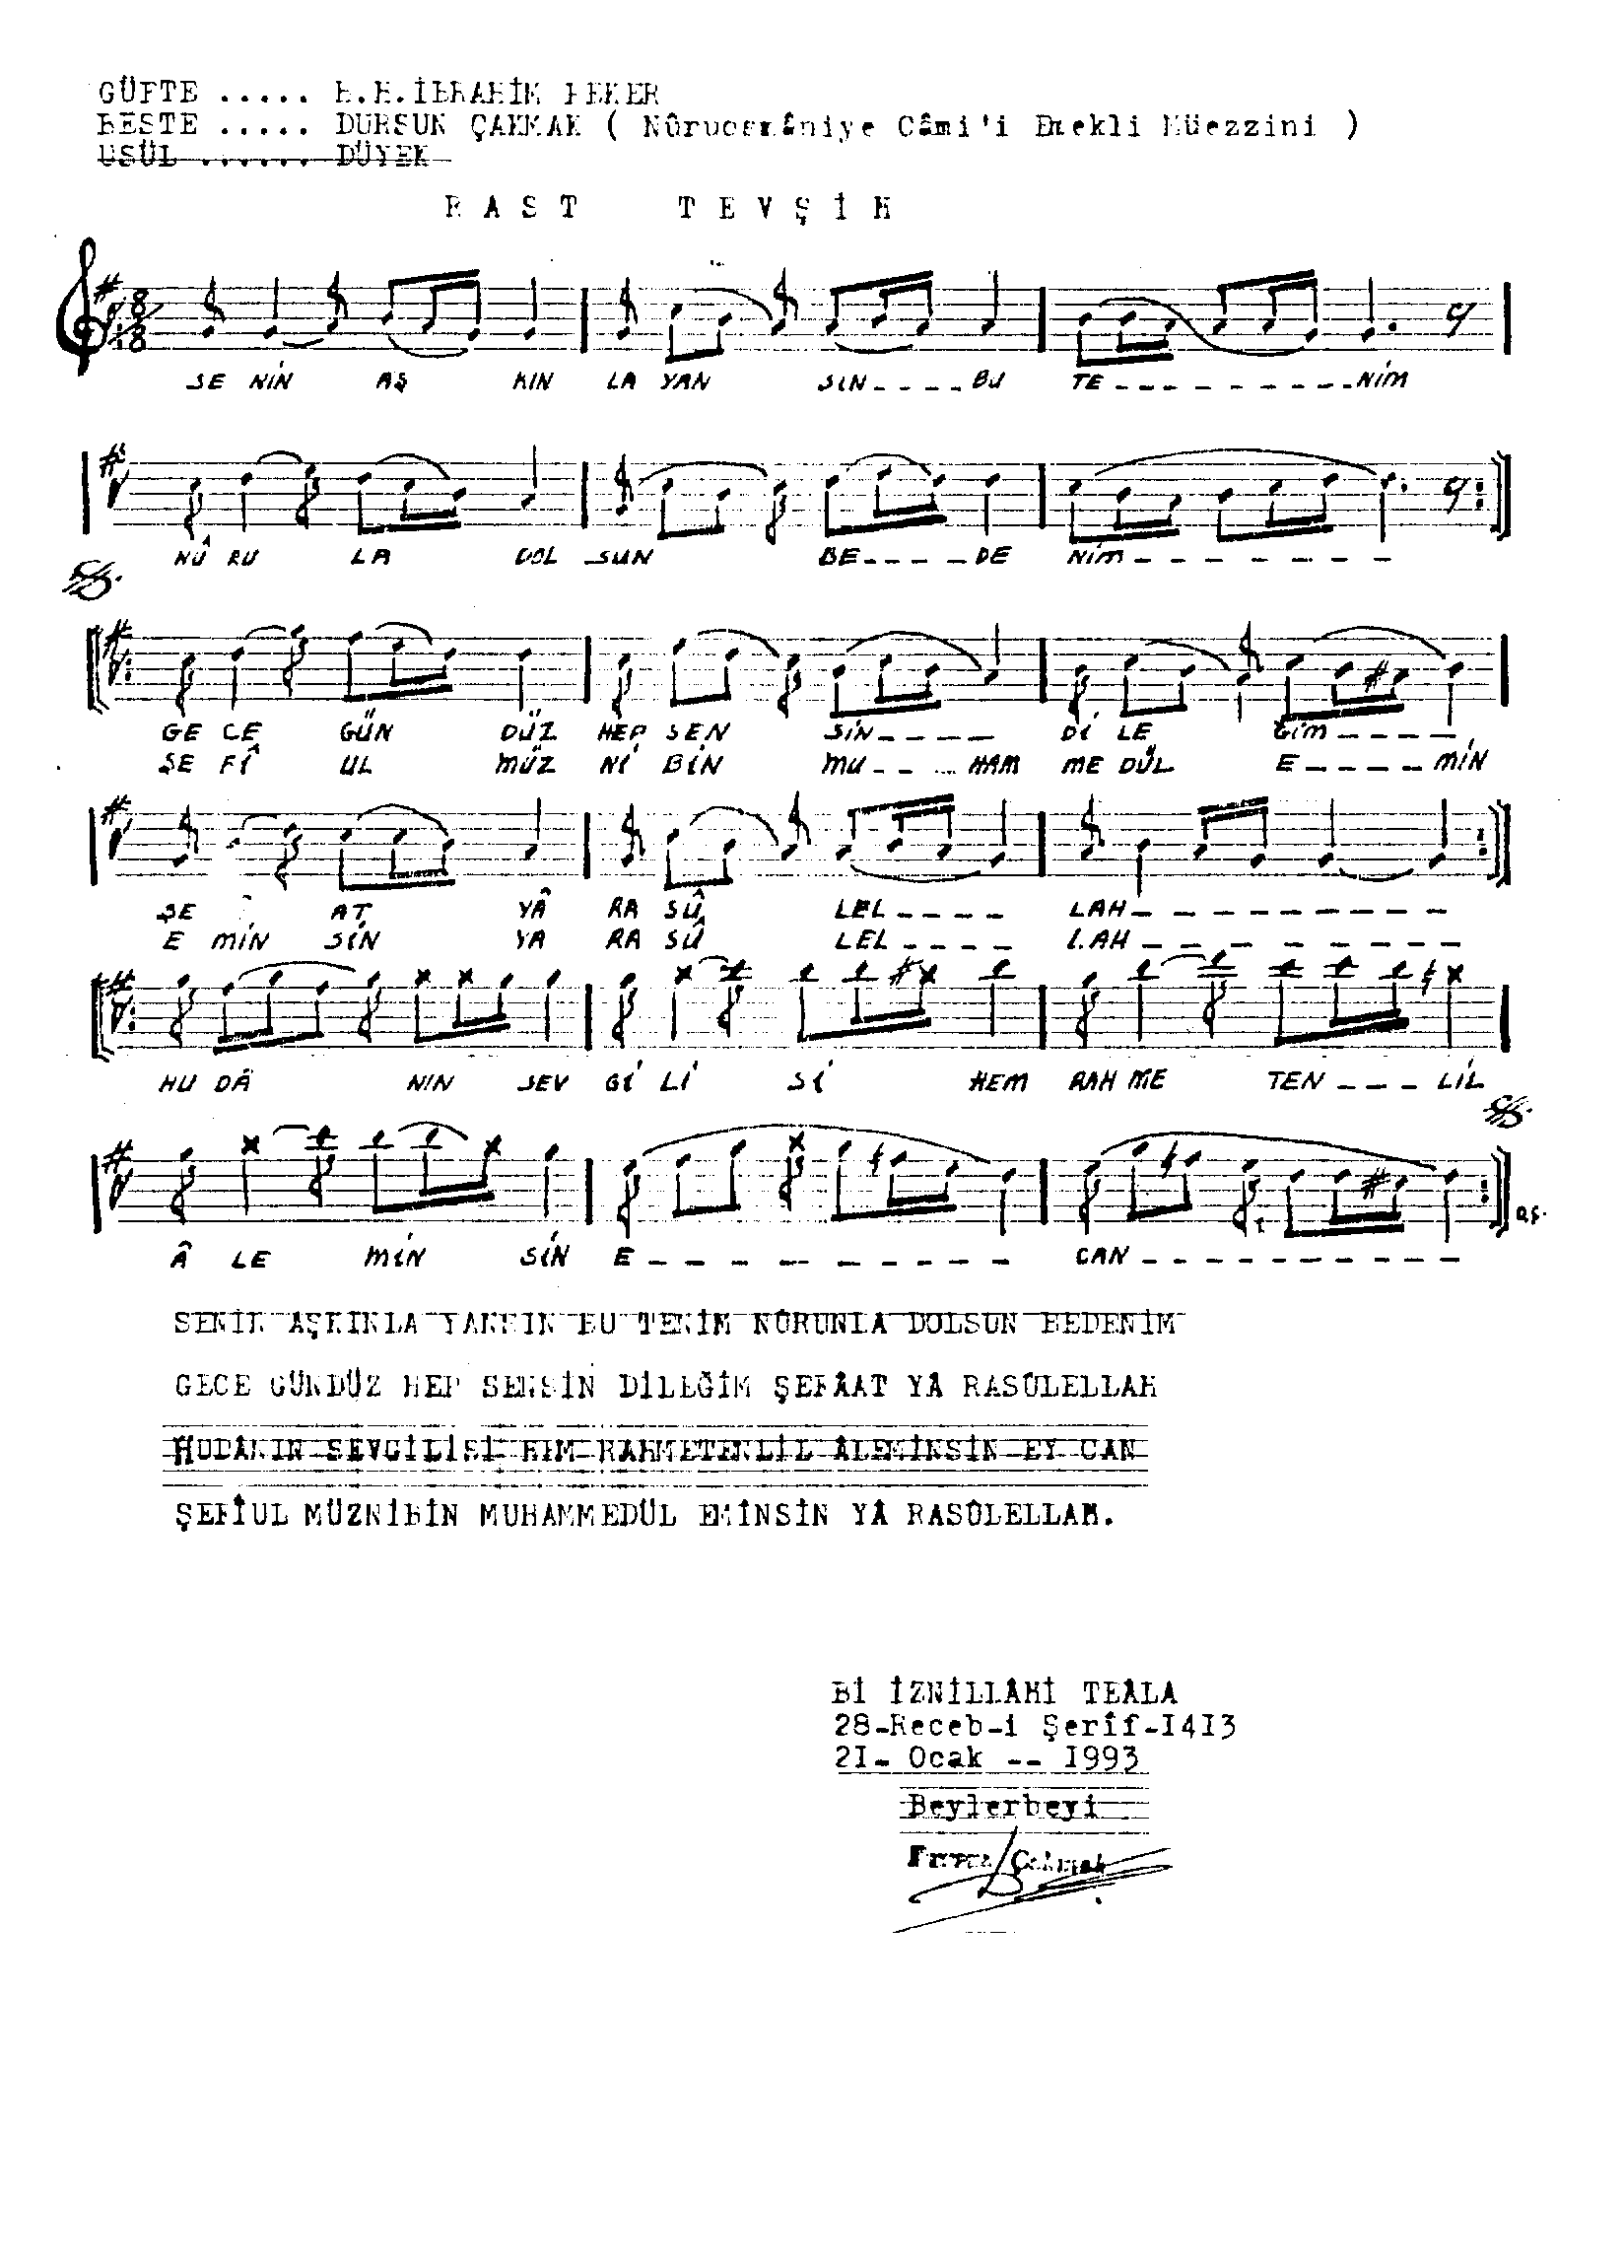 GÜFTE ..... H.H.İBRAHİM PEKER
BESTE ..... DURSUN ÇAKMAK ( Nûruosmâniye Câmi'i Emekli Müezzini )
USÜL ...... DÜYEK
RAST TEVŞİH
8 8
SE NİN AŞ KIN LA YAN SIN - - - - BU TE - - - - - - - - NİM
NÛ RU LA DOL SUN BE - - - - DE NİM - - - - - - -
GE CE GÜN DÜZ HEP SEN SİN - - - - Dİ LE ĞİM - - - -
ŞE FÎ UL MÜZ Nİ BİN MU - - - HAM ME DÜL E - - - - MİN
ŞE AT YÂ RA SÛ LEL - - - - LAH - - - - - - - - -
E MİN SİN YA RA SÛ LEL - - - - LAH - - - - - - - -
HU DÂ NIN SEV Gİ Lİ Sİ HEM RAH ME TEN - - - LİL
  LE MİN SİN E - - - - - - - - CAN - - - - - - - - - -
SENİN AŞKINLA YANSIN BU TENİM NÛRUNLA DOLSUN BEDENİM
GECE GÜNDÜZ HEP SENSİN DİLEĞİM ŞEFÂAT YÂ RASÛLELLAH
HUDÂNIN SEVGİLİSİ HEM RAHMETENLİL ÂLEMİNSİN EY CAN
ŞEFÎUL MÜZNİBİN MUHAMMEDÜL EMİNSİN YÂ RASÛLELLAH.
Bİ İZNİLLÂHİ TEÂLA
28-Receb-i Şerîf-I4I3
2I- Ocak -- I993
Beylerbeyi
Çakmak